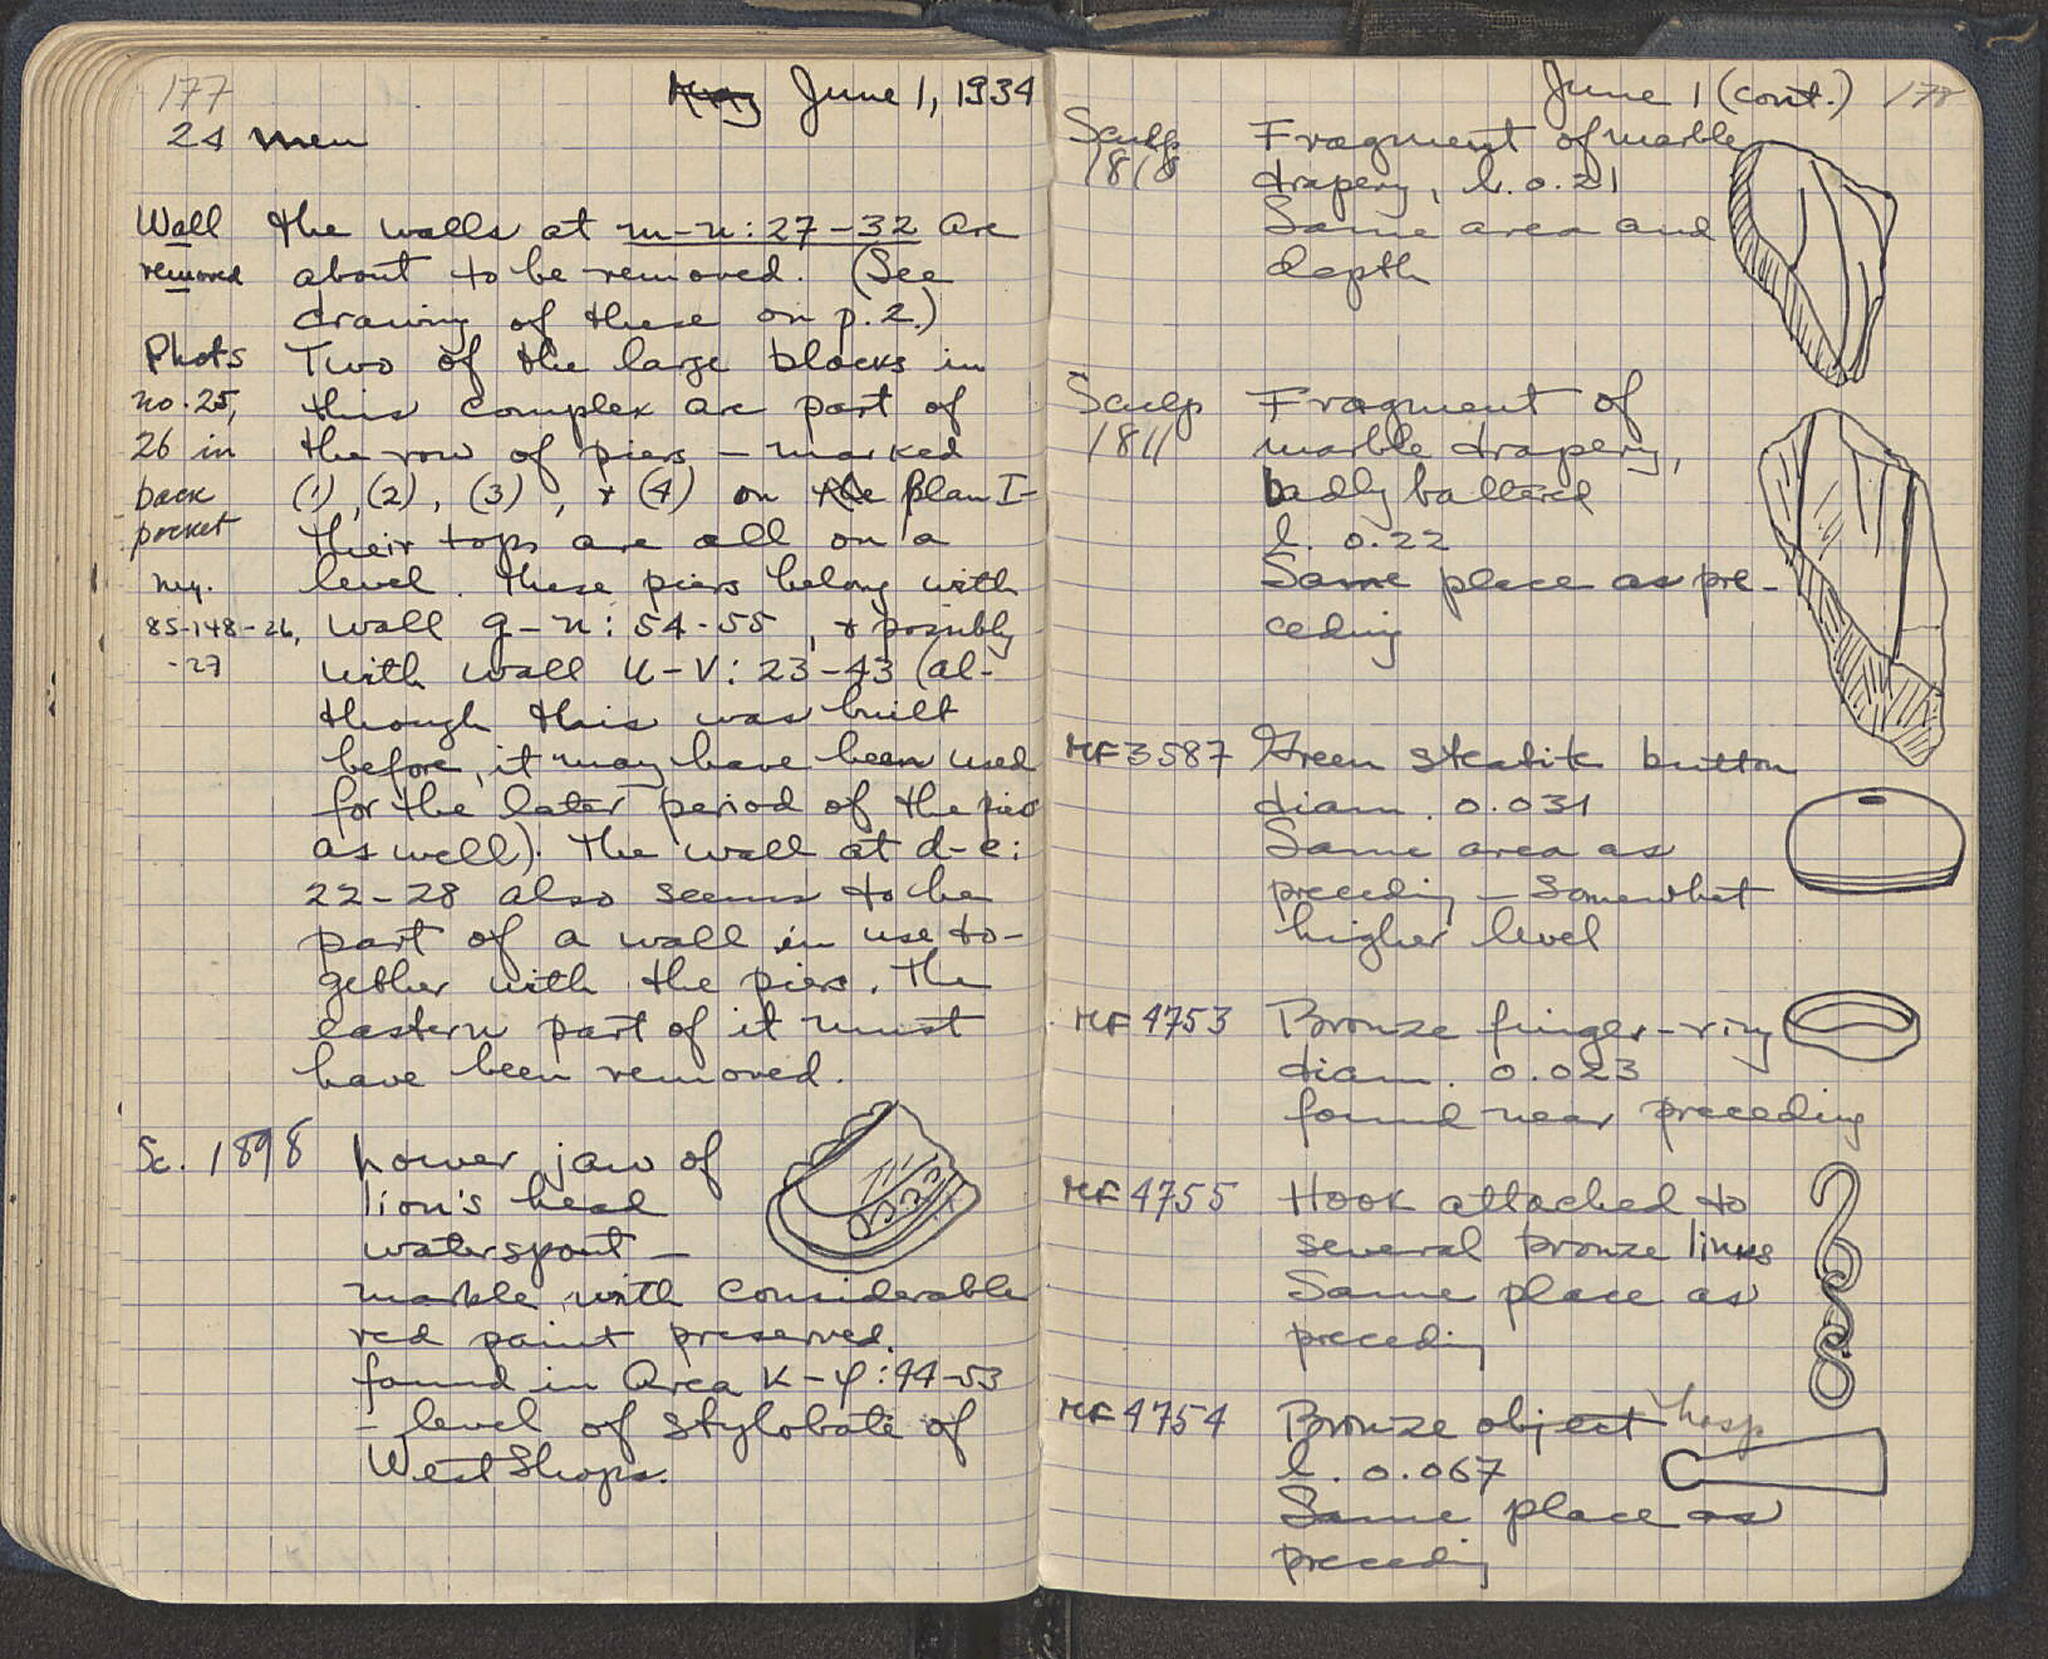 177
May June 1, 1934
24 men
Wall
removed
The walls at m-n: 27-32 are
about to be removed. (See
drawing of these on p. 2.)
Phots
no. 25,
26 in
back
pocket
neg.
85-148-26,
-27
Two of the large blocks in
this complex are part of
the row of piers - marked
(1), (2), (3), + (4) on the Plan I-
their tops are all on a
level. These piers belong with
wall g-n: 54-55, + possibly
with wall u-v: 23-43 (al-
though this was built
before, it may have been used
for the later period of the piers
as well). The wall at d-e:
22-28 also seems to be
part of a wall in use to-
gether with the piers. The
eastern part of it must
have been removed.
Sc. 1898
Lower jaw of
lion's head
waterspout -
marble with considerable
red paint preserved.
found in Area K-φ: 44-53
- level of stylobate of
West Shops.
June 1 (cont.) 178
Sculp
1810
Fragment of marble
drapery, l. 0.21
Same area and
depth
Sculp
1811
Fragment of
marble drapery,
badly battered
l. 0.22
Same place as pre-
ceding
MF 3587
Green steatite button
diam. 0.031
Same area as
preceding - somewhat
higher level
MF 4753
Bronze finger-ring
diam. 0.023
found near preceding
MF 4755
Hook attached to
several bronze links
Same place as
preceding
MF 4754
Bronze object hasp
l. 0.067
Same place as
preceding